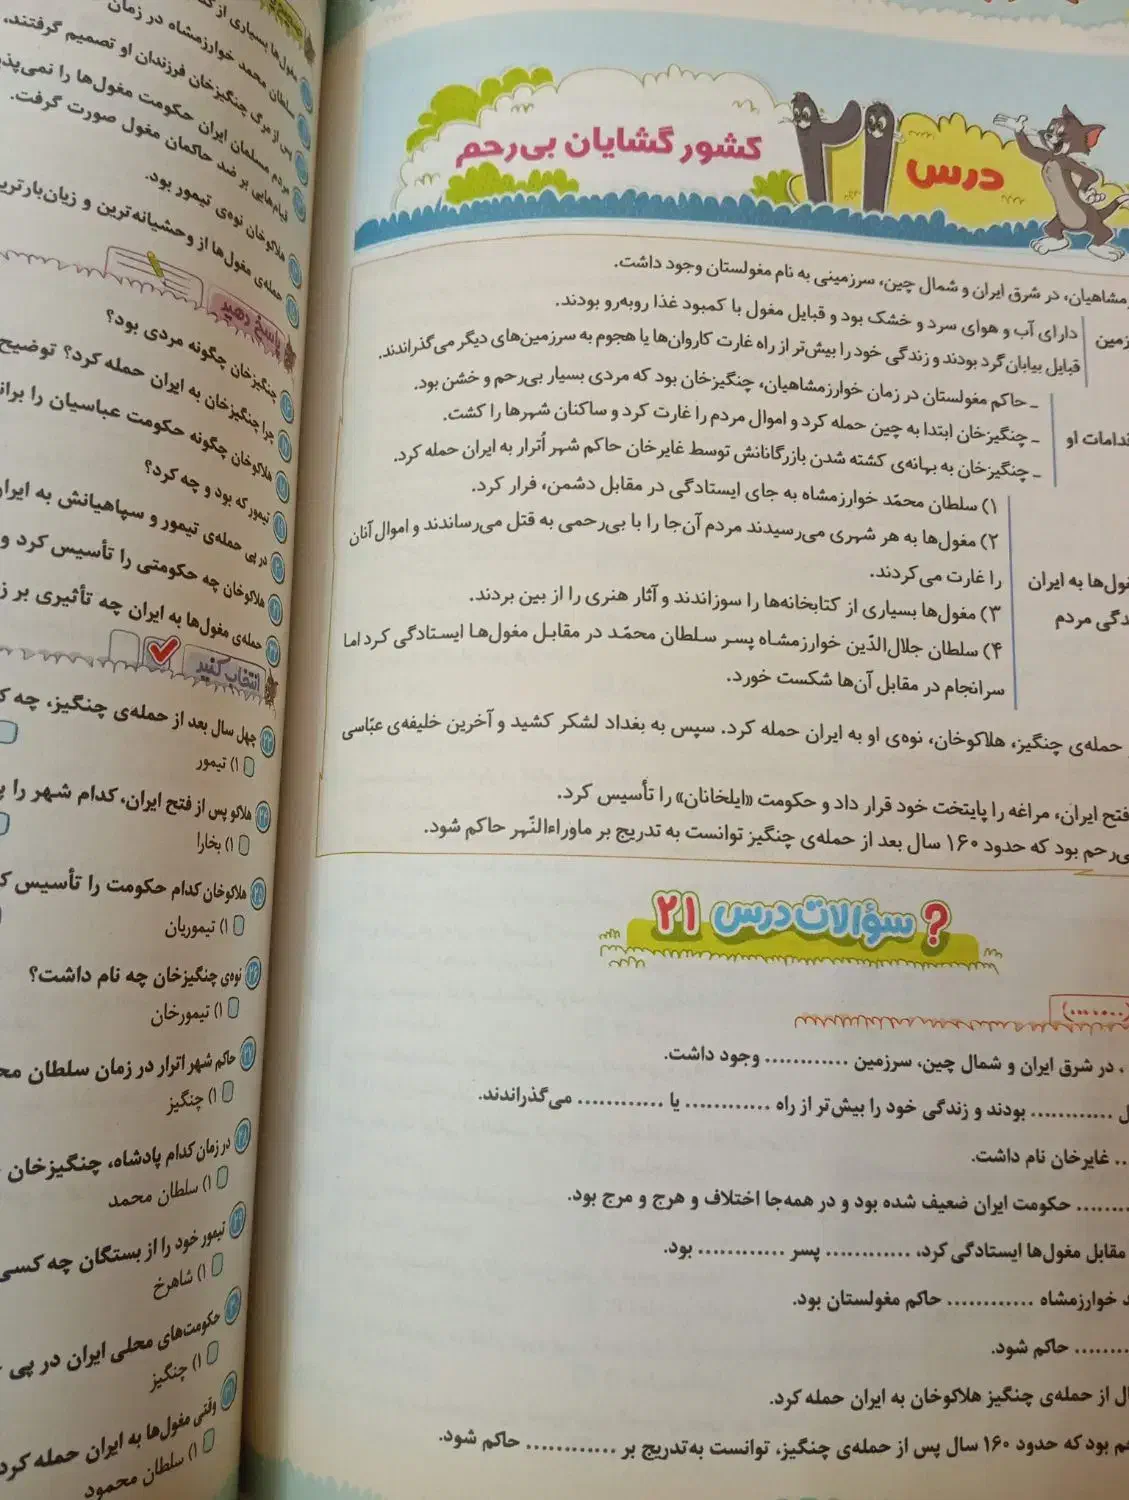 درس ۲۱
کشور گشایان بی‌رحم
در شرق ایران و شمال چین، سرزمینی به نام مغولستان وجود داشت.
دارای آب و هوای سرد و خشک بود و قبایل مغول با کمبود غذا روبه‌رو بودند.
قبایل بیابان‌گرد بودند و زندگی خود را بیش‌تر از راه غارت کاروان‌ها یا هجوم به سرزمین‌های دیگر می‌گذراندند.
ـ حاکم مغولستان در زمان خوارزمشاهیان، چنگیزخان بود که مردی بسیار بی‌رحم و خشن بود.
ـ چنگیزخان ابتدا به چین حمله کرد و اموال مردم را غارت کرد و ساکنان شهرها را کشت.
ـ چنگیزخان به بهانه‌ی کشته شدن بازرگانانش توسط غایرخان حاکم شهر اُترار به ایران حمله کرد.
۱) سلطان محمّد خوارزمشاه به جای ایستادگی در مقابل دشمن، فرار کرد.
۲) مغول‌ها به هر شهری می‌رسیدند مردم آن‌جا را با بی‌رحمی به قتل می‌رساندند و اموال آنان
را غارت می‌کردند.
به ایران
مردم
۳) مغول‌ها بسیاری از کتابخانه‌ها را سوزاندند و آثار هنری را از بین بردند.
۴) سلطان جلال‌الدّین خوارزمشاه پسر سلطان محمّد در مقابل مغول‌ها ایستادگی کرد اما
سرانجام در مقابل آن‌ها شکست خورد.
حمله‌ی چنگیز، هلاکوخان، نوه‌ی او به ایران حمله کرد. سپس به بغداد لشکر کشید و آخرین خلیفه‌ی عبّاسی
فتح ایران، مراغه را پایتخت خود قرار داد و حکومت «ایلخانان» را تأسیس کرد.
بود که حدود ۱۶۰ سال بعد از حمله‌ی چنگیز توانست به تدریج بر ماوراءالنّهر حاکم شود.
؟ سؤالات درس ۲۱
در شرق ایران و شمال چین، سرزمین ............ وجود داشت.
............ بودند و زندگی خود را بیش‌تر از راه ............ یا ............ می‌گذراندند.
غایرخان نام داشت.
حکومت ایران ضعیف شده بود و در همه‌جا اختلاف و هرج و مرج بود.
مقابل مغول‌ها ایستادگی کرد، ............ پسر ............ بود.
خوارزمشاه ............ حاکم مغولستان بود.
حاکم شود.
از حمله‌ی چنگیز هلاکوخان به ایران حمله کرد.
بود که حدود ۱۶۰ سال پس از حمله‌ی چنگیز، توانست به‌تدریج بر ............ حاکم شود.
مغول‌ها بسیاری از
سلطان محمد خوارزمشاه در زمان
پس از مرگ چنگیزخان فرزندان او تصمیم گرفتند،
مردم مسلمان ایران حکومت مغول‌ها را
قیام‌هایی بر ضد حاکمان مغول صورت گرفت.
هلاکوخان نوه‌ی تیمور بود.
حمله‌ی مغول‌ها از وحشیانه‌ترین و
پاسخ دهید
چنگیزخان چگونه مردی بود؟
چرا چنگیزخان به ایران حمله کرد؟ توضیح
هلاکوخان چگونه حکومت عباسیان را
تیمور که بود و چه کرد؟
در پی حمله‌ی تیمور و سپاهیانش به
هلاکوخان چه حکومتی را تأسیس کرد و
حمله‌ی مغول‌ها به ایران چه تأثیری بر
انتخاب کنید
چهل سال بعد از حمله‌ی چنگیز، چه
۱) تیمور
هلاکو پس از فتح ایران، کدام شهر را
۱) بخارا
هلاکوخان کدام حکومت را تأسیس
۱) تیموریان
نوه‌ی چنگیزخان چه نام داشت؟
۱) تیمورخان
حاکم شهر اترار در زمان سلطان
۱) چنگیز
در زمان کدام پادشاه، چنگیزخان
۱) سلطان محمد
تیمور خود را از بستگان چه کسی
۱) شاهرخ
حکومت‌های محلی ایران در پی
۱) چنگیز
وقتی مغول‌ها به ایران حمله
۱) سلطان محمود